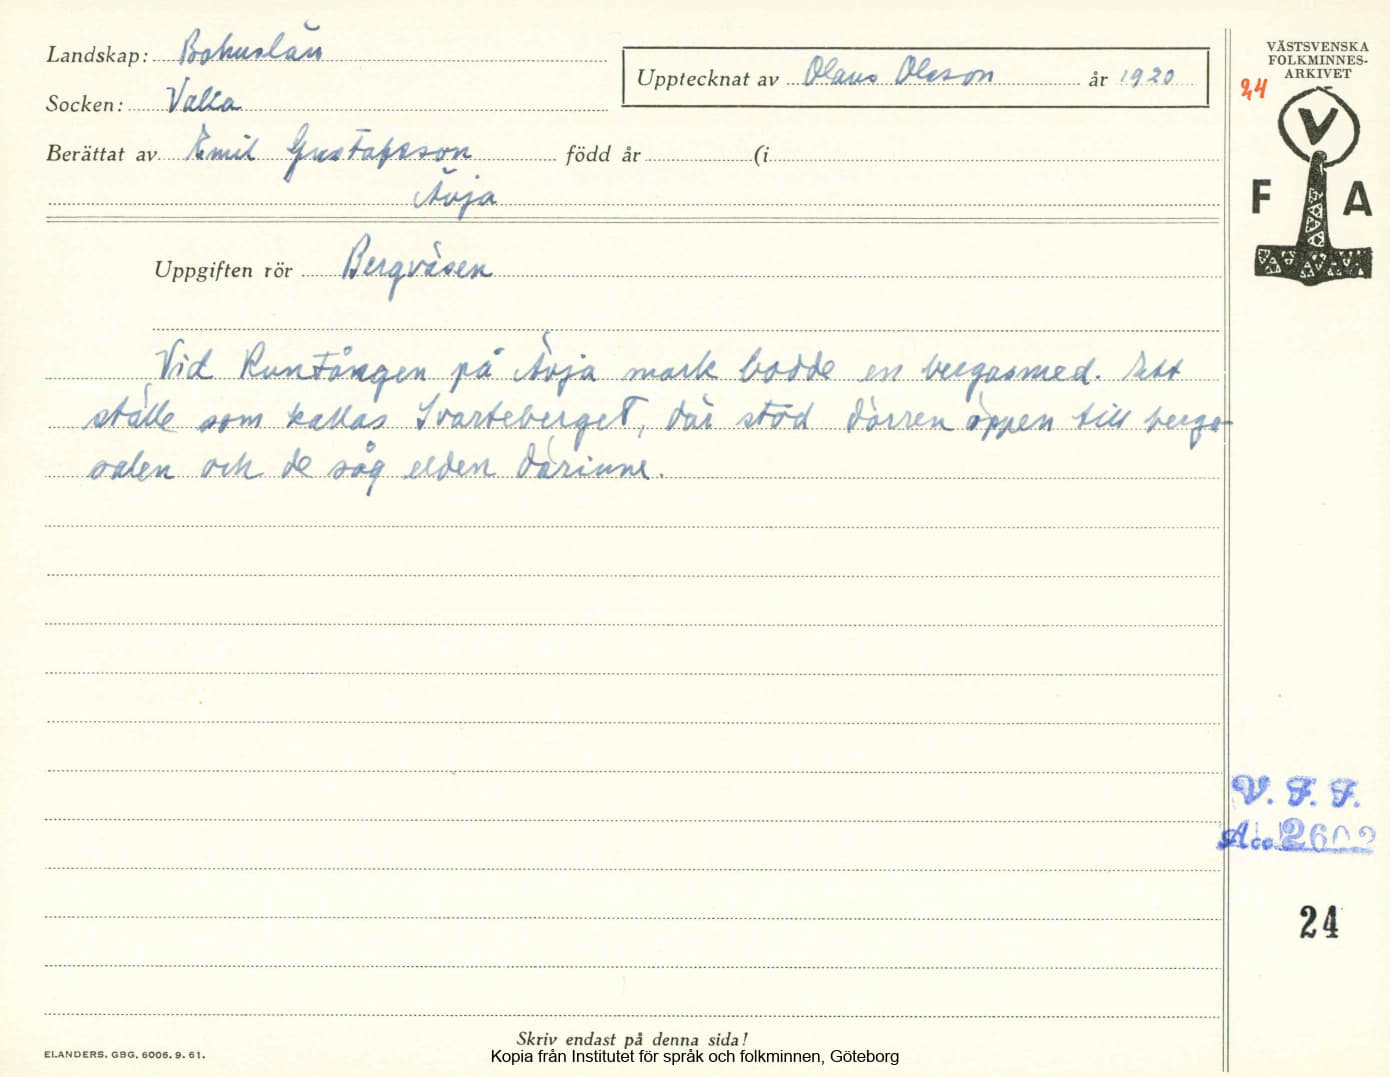 Landskap: Bohuslän
Upptecknat av Olaus Olsson år 1920
Socken: Valla
Berättat av Emil Gustafsson född år (i
Åvja
Uppgiften rör Bergväsen
Vid Runtången på Åvja mark bodde en bergasmed. Ett
ställe som kallas Svarteberget, där stod dörren öppen till berga-
salen och de såg elden därinne.
VÄSTSVENSKA
FOLKMINNES-
ARKIVET
24
V
F A
V. F. F.
Acc. 2602
24
Skriv endast på denna sida!
ELANDERS, GBG, 6006. 9. 61.
Kopia från Institutet för språk och folkminnen, Göteborg